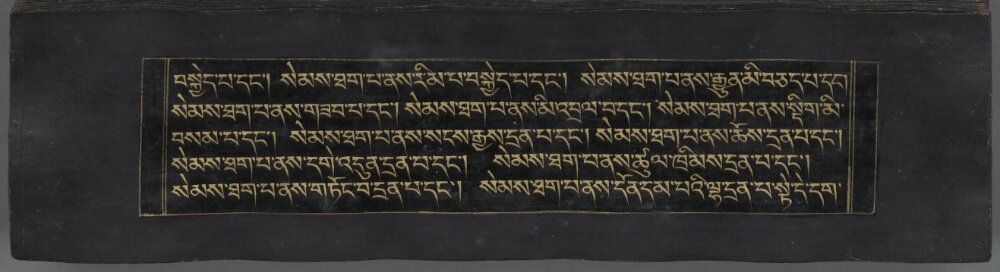 བསྐྱེད་པ་དང༌། སེམས་ཐག་པ་ནས་རི་མི་པ་བསྐྱེད་པ་དང༌། སེམས་ཐག་པ་ནས་རྒྱུན་མི་བཅད་པ་དང
སེམས་ཐག་པ་ནས་གཟབ་པ་དང༌། སེམས་ཐག་པ་ནས་མི་འདྲལ་བ་དང༌། སེམས་ཐག་པ་ནས་སྡིག་མི་
བྱས་མ་པ་དང༌། སེམས་ཐག་པ་ནས་སངས་རྒྱས་དྲན་པ་དང༌། སེམས་ཐག་པ་ནས་ཆོས་དྲན་པ་དང༌།
སེམས་ཐག་པ་ནས་དགེ་འདུན་དྲན་པ་དང༌། སེམས་ཐག་པ་ནས་ཚུལ་ཁྲིམས་དྲན་པ་དང༌།
སེམས་ཐག་པ་ནས་གཏོང་བ་དྲན་པ་དང༌། སེམས་ཐག་པ་ནས་དོན་དམ་པའི་ལྷ་དྲན་པ་སྟེ་དེ་དག་